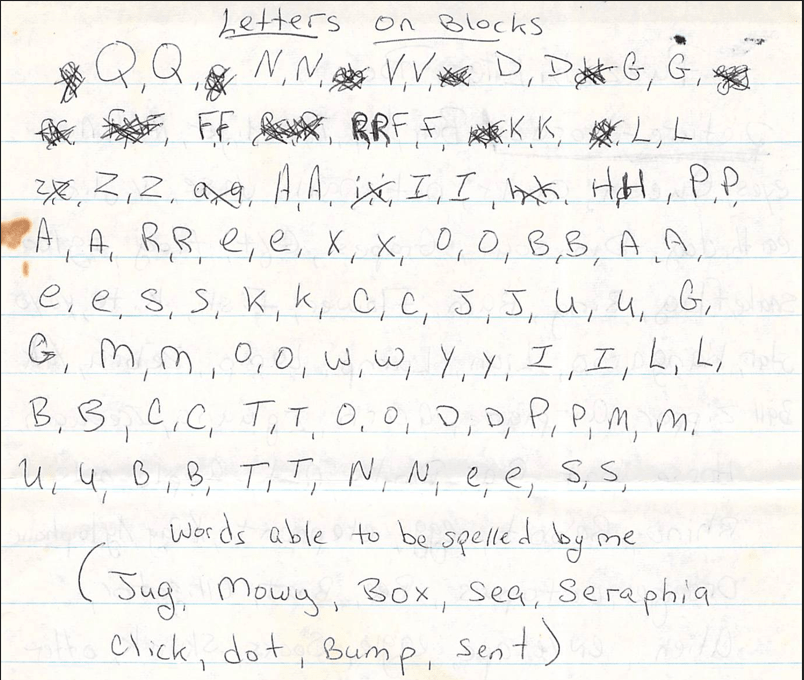 Letters on Blocks
Q, Q, N, N, V, V, D, D, G, G,
FF, RR, F, F, K, K, L, L
Z, Z, A, A, I, I, H, H, P, P,
A, A, R, R, e, e, X, X, O, O, B, B, A, A,
e, e, S, S, K, K, C, C, J, J, U, U, G,
G, M, M, O, O, W, W, Y, Y, I, I, L, L,
B, B, C, C, T, T, O, O, D, D, P, P, M, M,
U, U, B, B, T, T, N, N, e, e, S, S,
Words able to be spelled by me
(Jug, Mowy, Box, Sea, Seraphia
Click, dot, Bump, Sent)